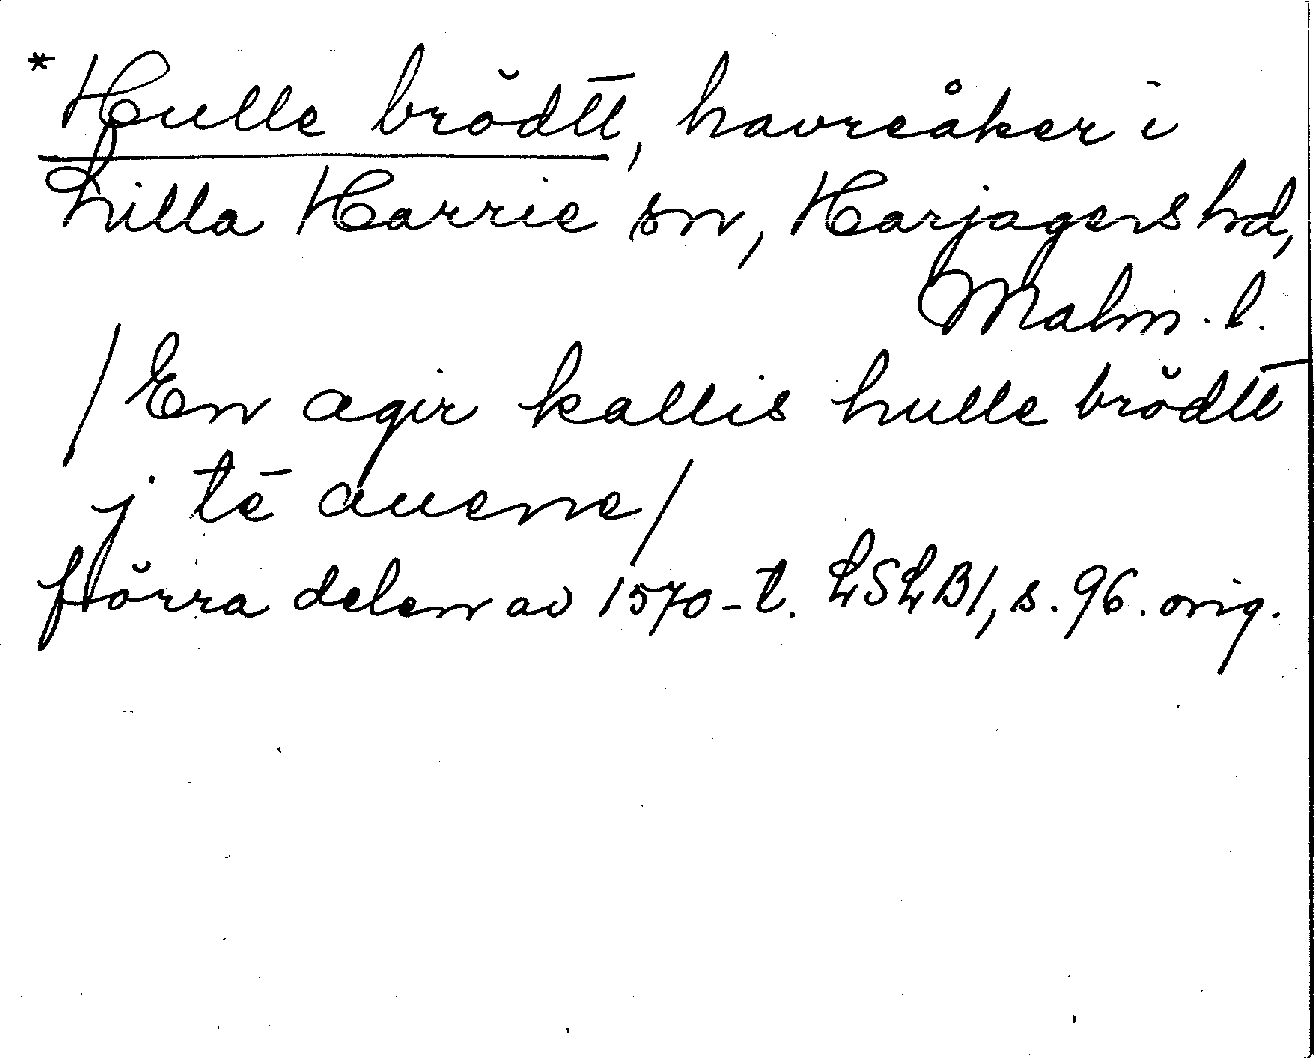 *Hulle brödtt, havreåker i
Lilla Harrie sn, Harjagers hd,
Malm. l.
/En agir kallis hulle brödtt
j tē auene/
förra delen av 1570-t. LSLB1, s. 96. orig.